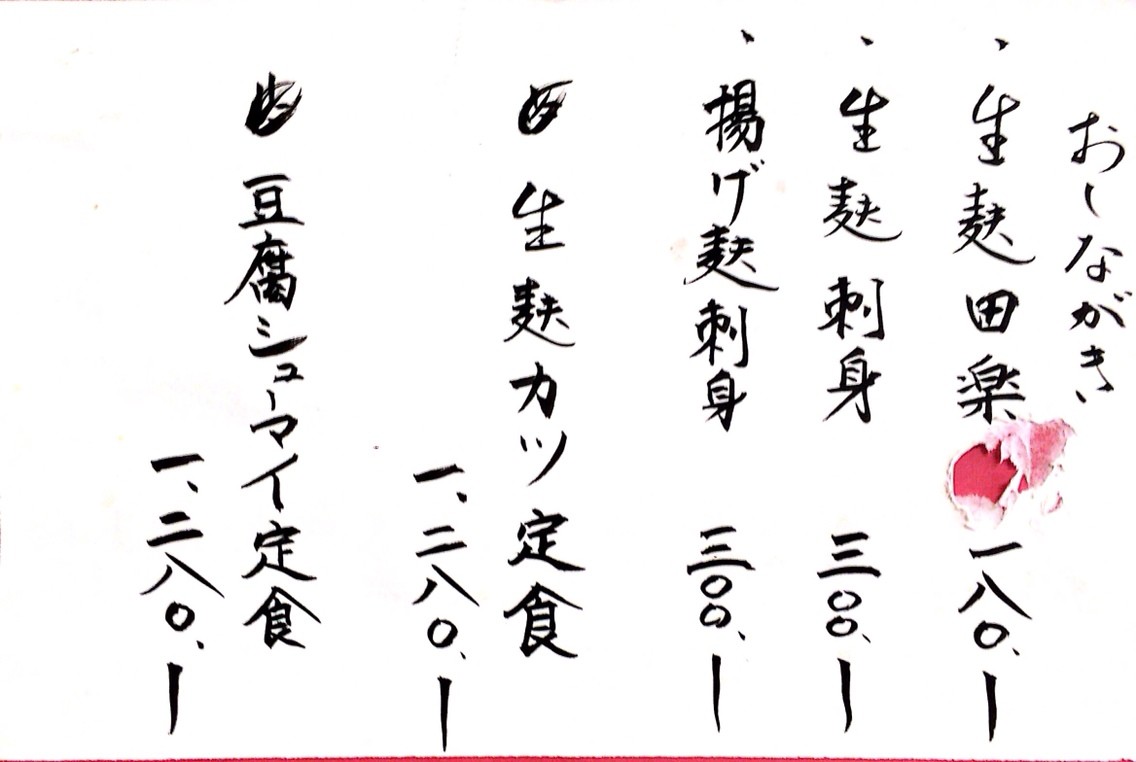 おしながき
、生麩田楽 一八〇、ー
、生麩刺身 三〇〇、ー
、揚げ麩刺身 三〇〇、ー
生麩カツ定食
一、二八〇、ー
豆腐シューマイ定食
一、二八〇、ー